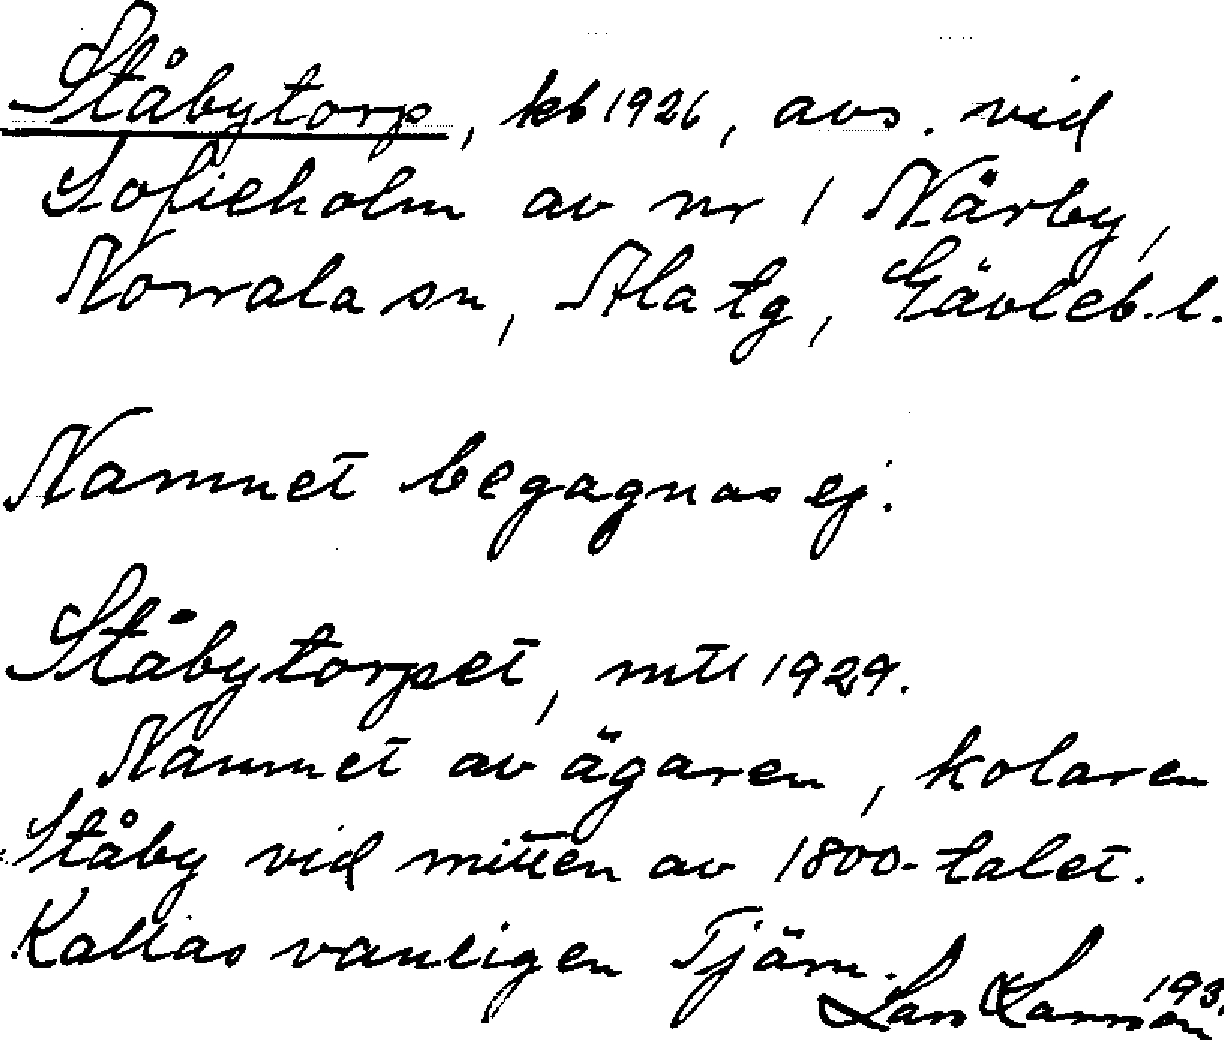 Ståbytorp, kb 1926, avs. vid
Sofieholm av nr 1 Närby,
Norrala sn, Ala tg, Gävleb. l.
Namnet begagnas ej.
Ståbytorpet, mtl 1929.
Namnet av ägaren, kolaren
Ståby vid mitten av 1800-talet.
Kallas vanligen Tjärn.
Lars Larsson 193